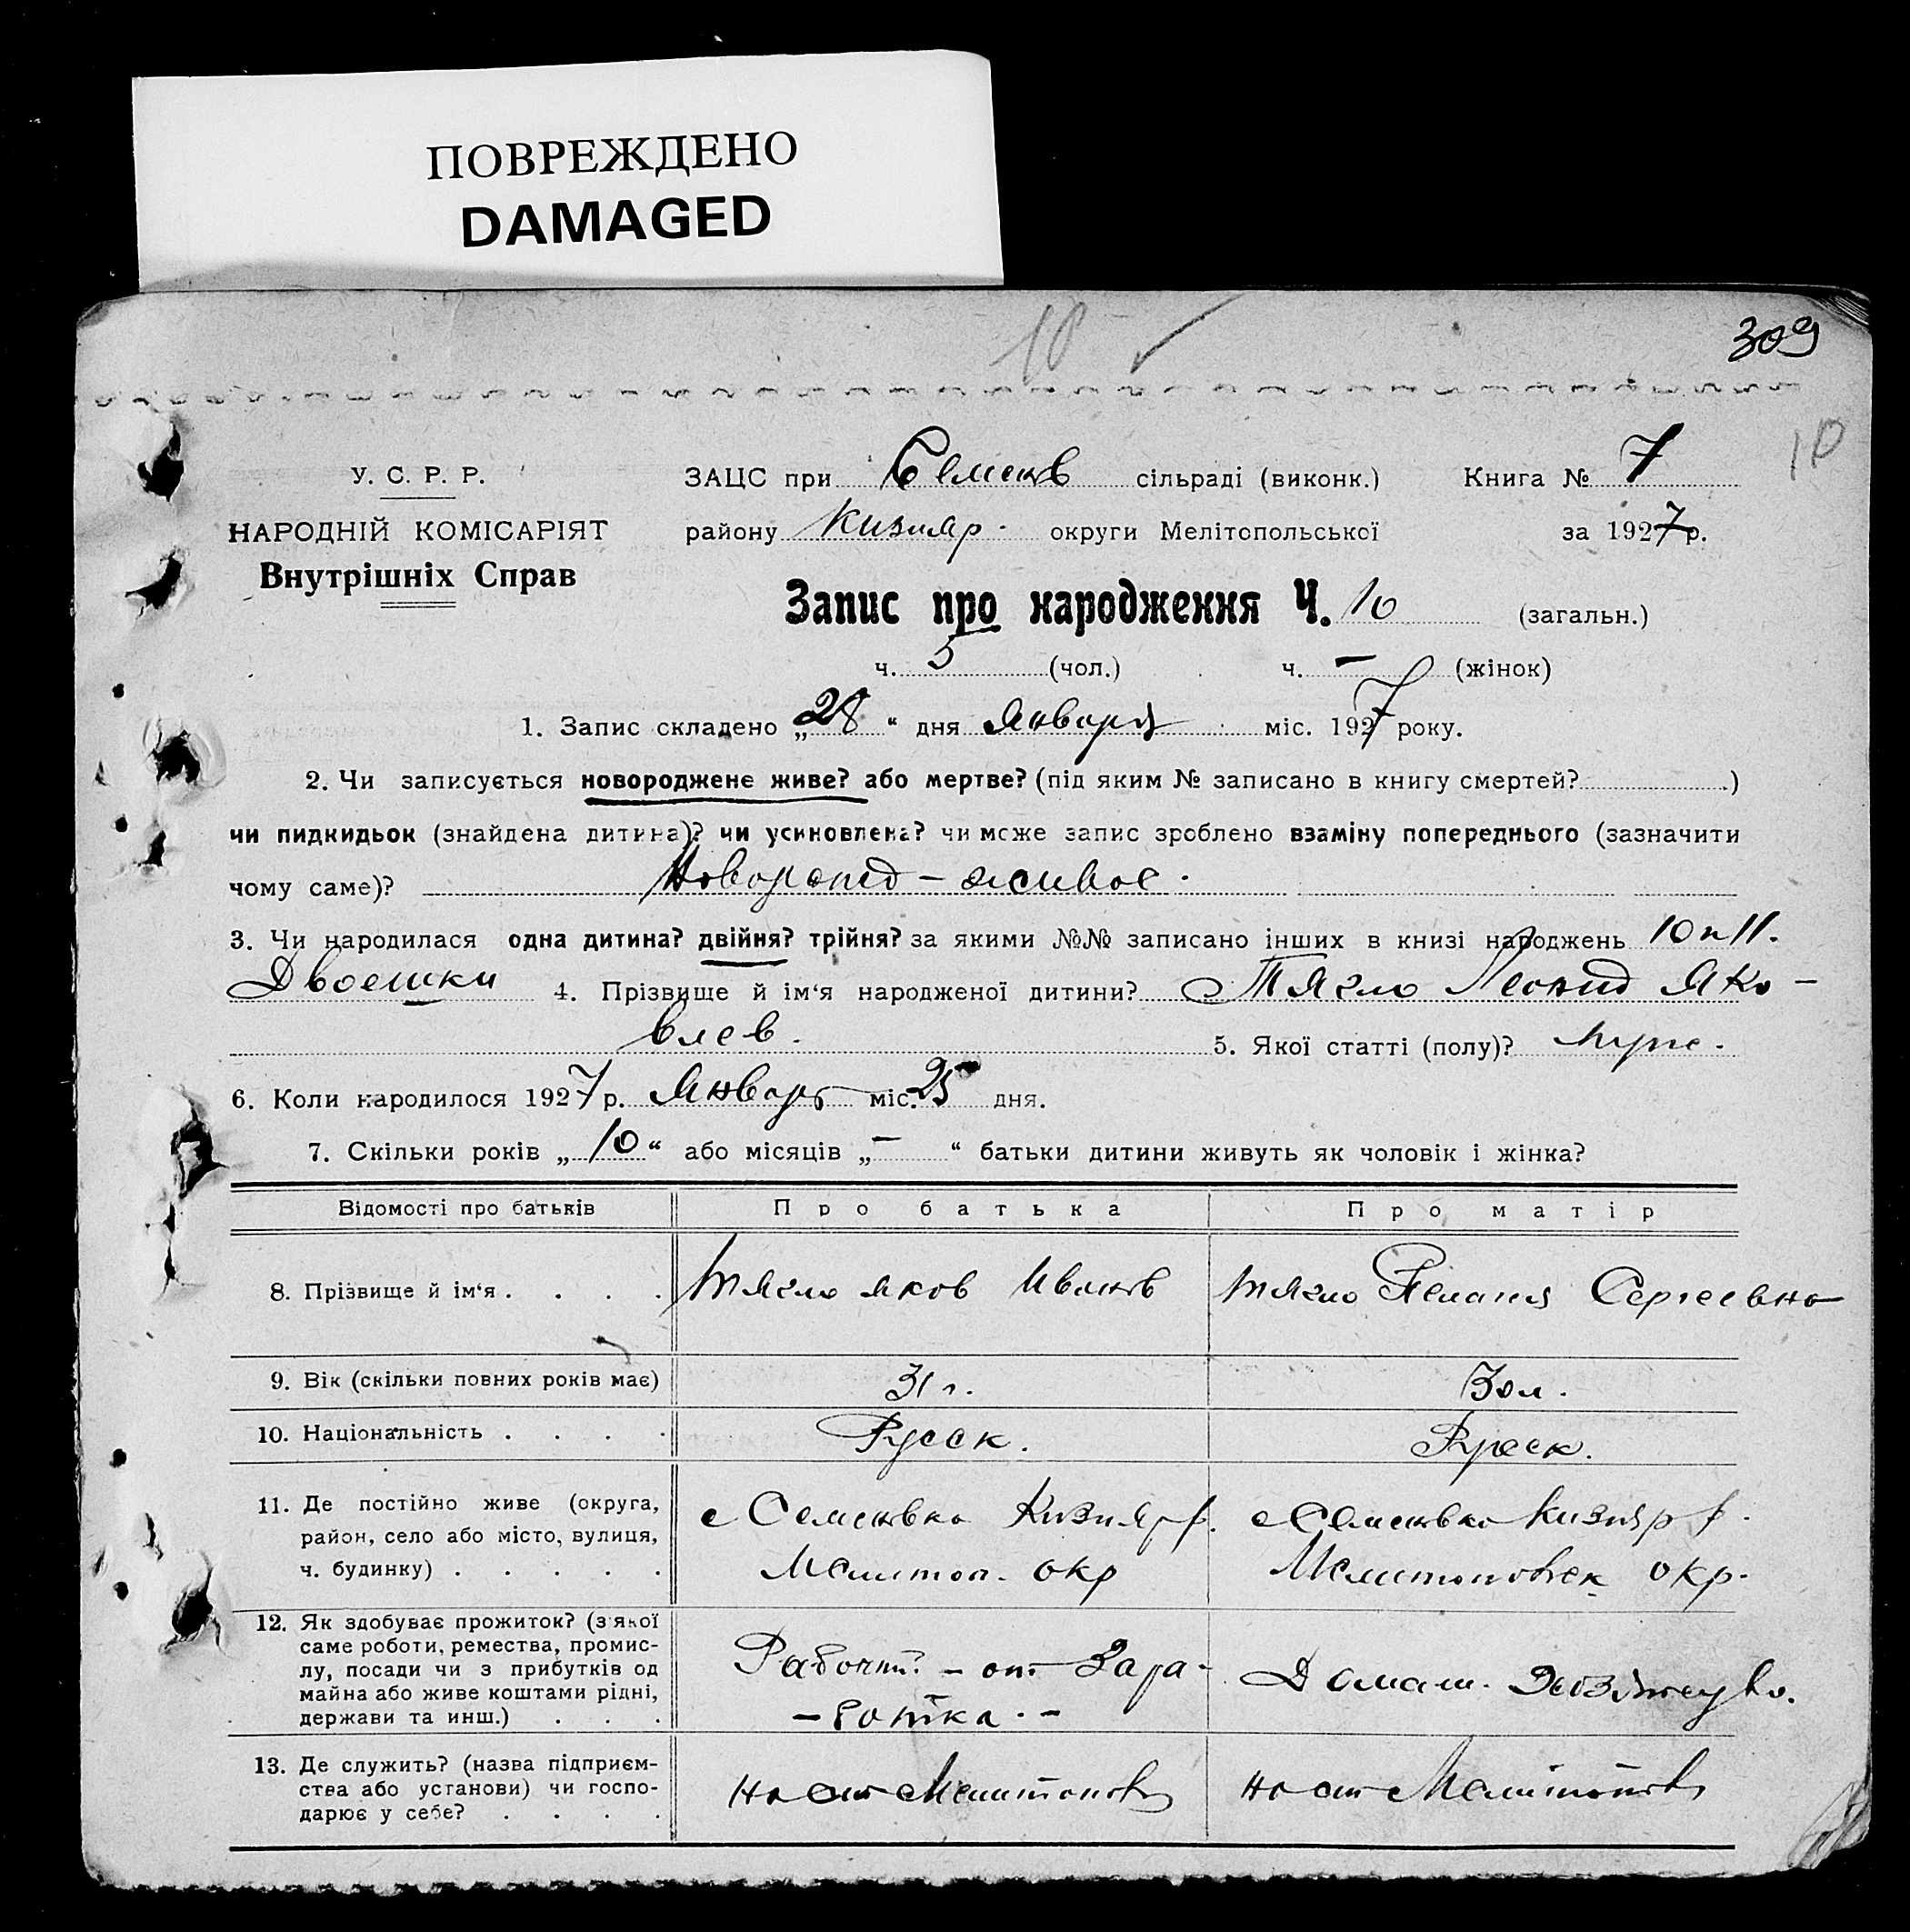 ПОВРЕЖДЕНО
DAMAGED
10
309
10
У. С. Р. Р.
НАРОДНІЙ КОМІСАРІЯТ
Внутрішніх Справ
ЗАЦС при Семенов сільраді (виконк.) Книга № 7
району Кизияр. округи Мелітопольської за 1927 р.
Запис про народження Ч. 10 (загальн.)
ч. 5 (чол.) ч. — (жінок)
1. Запис складено „28“ дня Января міс. 1927 року.
2. Чи записується новороджене живе? або мертве? (під яким № записано в книгу смертей? )
чи пидкидьок (знайдена дитина)? чи усиновлена? чи може запис зроблено взаміну попереднього (зазначити
чому саме)? Новорожд – живое.
3. Чи народилася одна дитина? двійня? трійня? за якими №№ записано інших в книзі народжень 10 и 11.
Двоешки 4. Прізвище й ім‘я народженої дитини? Тягло Леонид Яко-
влев. 5. Якої статті (полу)? муж.
6. Коли народилося 1927 р. Январ міс. 25 дня.
7. Скільки років „10“ або місяців „—“ батьки дитини живуть як чоловік і жінка?
Відомості про батьків Про батька Про матір
8. Прізвище й ім‘я . . . . Тягло Яков Иванов Тягло Пелагия Сергеевна
9. Вік (скільки повних років має) 31 г. 30 л.
10. Національність . . . . Русск. Русск.
11. Де постійно живе (округа,
район, село або місто, вулиця,
ч. будинку) . . . . .
с Семеновка Кизияр р.
Мелитоп. окр
с Семеновка Кизияр р.
Мелитоповск окр.
12. Як здобуває прожиток? (з якої
саме роботи, ремества, промис-
лу, посади чи з прибутків од
майна або живе коштами рідні,
держави та инш.) . . .
Рабочий – от Зара-
–ботка. –
Домаш.
13. Де служить? (назва підприєм-
ства або установи) чи госпо-
дарює у себе? . . . .
на ст Мелитополь
на ст Мелитополь